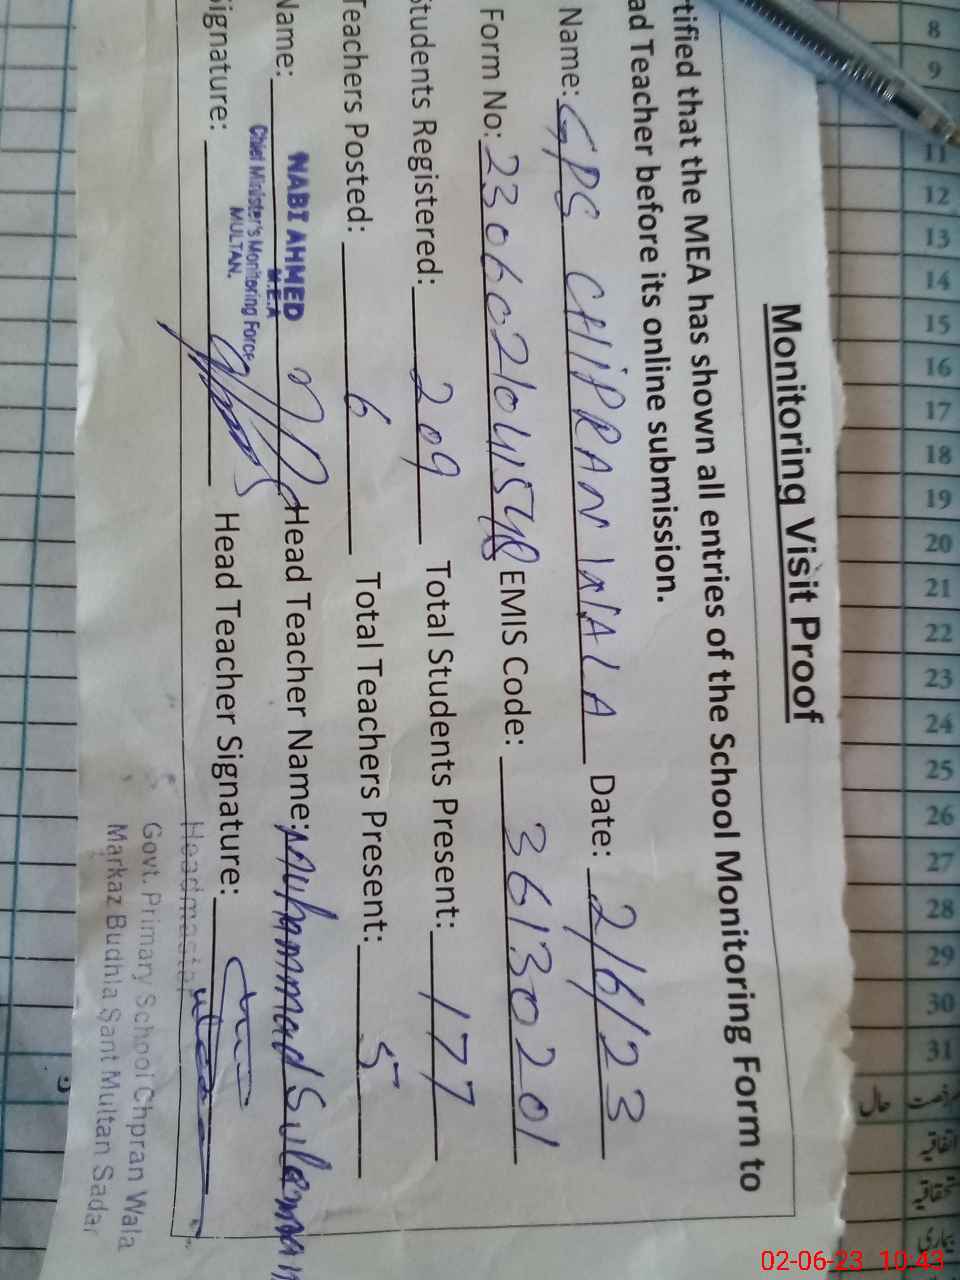 Monitoring Visit Proof
tified that the MEA has shown all entries of the School Monitoring Form to
ad Teacher before its online submission.
Name: GPS CHIPRAN WALA Date: 2/6/23
Form No: EMIS Code: 36130201
Students Registered: 209 Total Students Present: 177
Teachers Posted: 6 Total Teachers Present: 5
Name: NABI AHMED Head Teacher Name: Muhammad Suleman
M.E.A
Chief Minister's Monitoring Force
MULTAN.
Signature: Head Teacher Signature:
Headmaster
Govt. Primary School Chpran Wala
Markaz Budhla Sant Multan Sadar
8
9
11
12
13
14
15
16
17
18
19
20
21
22
23
24
25
26
27
28
29
30
31
02-06-23 10:43